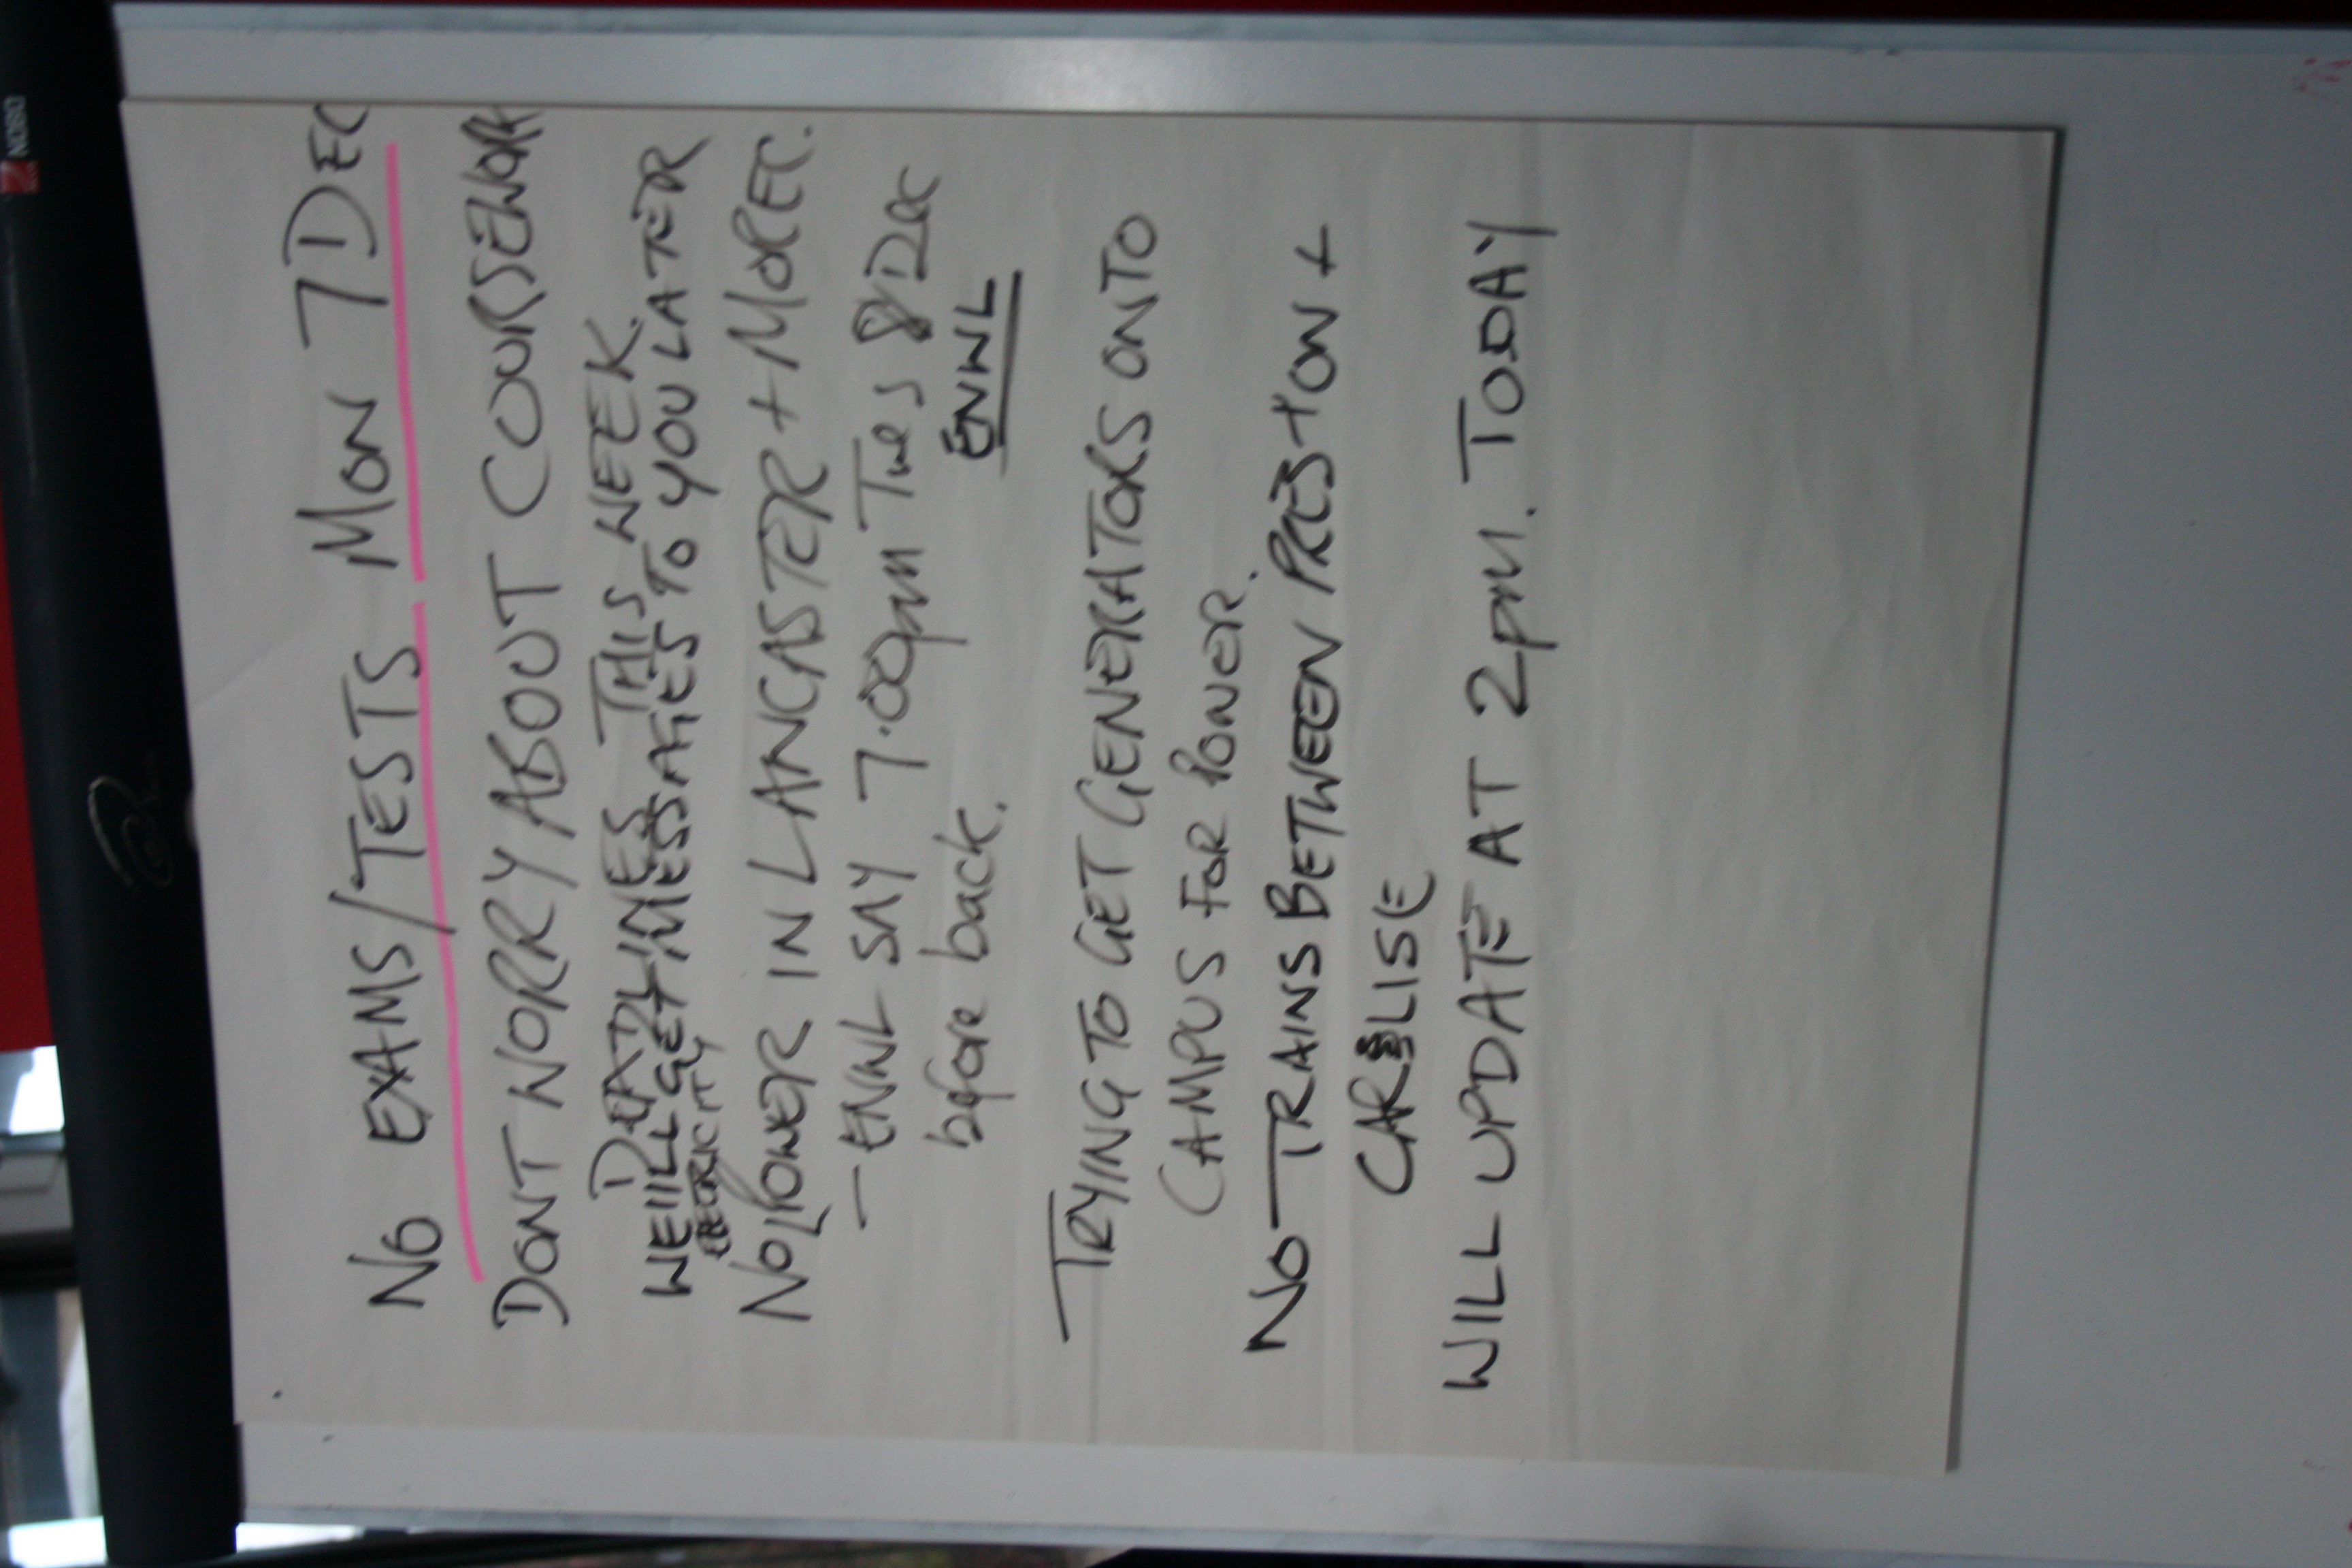 nobo
NO EXAMS/TESTS MON 7 DEC
DONT WORRY ABOUT COURSEWORK
DEADLINES THIS WEEK
WE'LL GET MESSAGES TO YOU LATER
ELECTRICITY
NO POWER IN LANCASTER + MOREC.
- ENWL SAY 7.00pm Tues 8 Dec
before back. ENWL
TRYING TO GET GENERATORS ONTO
CAMPUS FOR POWER.
NO TRAINS BETWEEN PRESTON +
CARLISLE
WILL UPDATE AT 2pm. TODAY